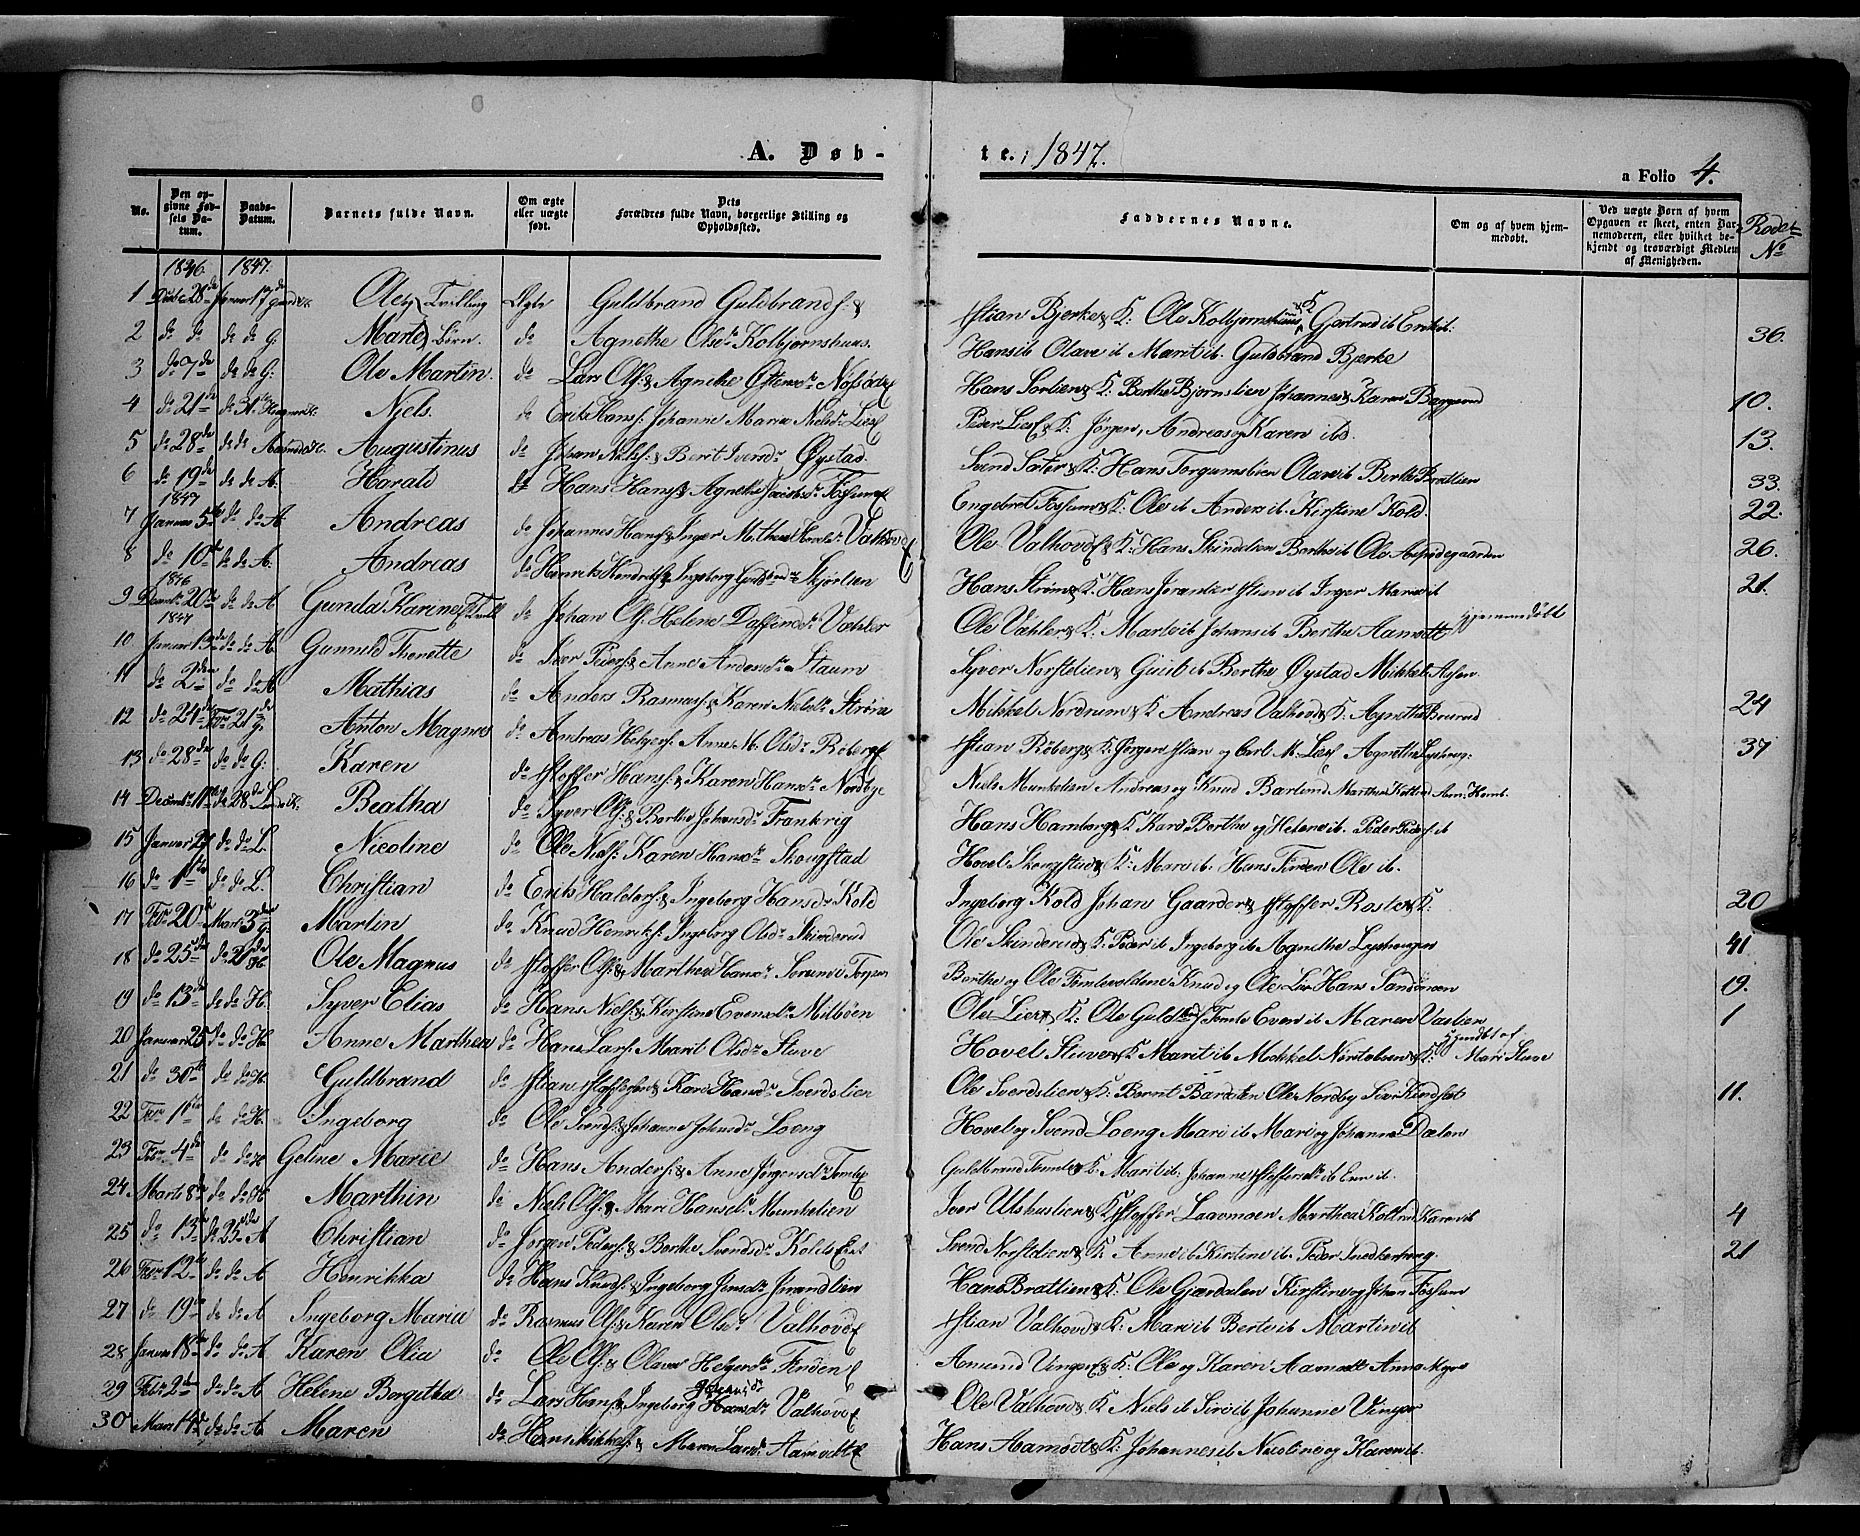 A. Døb-
te. 1847.
a Folio 4.
No. Den opgivne Fødsels Datum. Daabs-Datum. Barnets fulde Navn. Om ægte eller uægte født. Dets Forældres fulde Navn, borgerlige Stilling og Opholdssted. Faddernes Navne. Om og af hvem hjemmedøbt. Ved uægte Born af hvem Opgaven er skeet, enten Barnemoderen, eller hvilket bekjendt og troværdigt Medlem af Menigheden. Rodet No
1846 1847
1 28de Januar 17 Ole Tvilling Ægte Guldbrand Guldbrands: & stian Bjerke & K: Ole Kolbjørnshuus & K Gjertrud ib
2 do do do do G: Marte Børn. do Agnethe Olsdr Kolbjørnshuus. Hans ib Olave ib Marit ib Guldbrand Bjerke 36.
3 do 7de do do G: Ole Martin. do Lars Ols: & Agnethe Hans Sorlien & K: Berthe Bjørnslien Johannes & Karen
4 do 21de do 31te Niels. do Erik Hans: Johanne Marie Nielsdr Lie Peder Lie & K: Jørgen, Andreas og Karen ibs. 10.
5 do 28de do do Augustinus do Johan Niels: & Berit Iversdr Øystad. Svend Sæter & K: Hans Torgunslien Olave ib Berthe Brattlien 13.
6 do 19de do do A. Harald do Hans Hans: & Agnethe Jacobsdr Fossum Engebret Fossum & K: Ole ib Anders ib Kirstine Kold. 33
1847
7 Januar 5te do do A Andreas do Johannes Hans: & Inger Valhovd Ole Valhovd & K: Hans Skindelien Berthe ib Ole 22.
8 do 10de do do A. Andreas do Henrik Henriks: & Ingeborg Skjørlien Hans Strøm & K: Hans stian ib Inger Marie ib 26.
1846
9 Decembr 20de do do A Gunda Karine do Johan Ols: Helene Væhler Ole Væhler & K: Marte ib Johans ib Berthe Aamodt hjemmedøbt 21.
1847
10 Januar do do A Gunild Thonette do Iver Peders: & Anne Andersdr Staum Syver Norstelien & Guril ib Berthe Øystad Mikkel
11 do 2den do do A Mathias do Anders Rasmus: & Karen Nielsdr Strøm Mikkel Nordrum & K: Andreas Valhovd & K: Agnethe Brurud
12 do 24de Febr 21de G. Anton Magnus do Andreas Helgers: Anne M. Olsdr Røberg stian Røberg & K: Jørgen stian og Carl M. Lie Agnethe 24
13 do 28de do do G. Karen do stoffer Hans: & Karen Hansdr Nordbye Niels Munkelien Andreas og Knud Barlund Marthe Kolterud 37
14 Decembr 11te do 28de Beatha do Syver Ols: & Berthe Johansdr Frankrig Hans Hamborg & K: Kari Berthe og Helene ib Peder Peders ib
15 Januar 27 do do L. Nicoline do Ole Niels: Karen Hansdr Skougstad Hovel Skougstad & K: Mari ib Hans Finden Ole ib.
16 do 1ste do do L. Christian do Erik Haldors: & Ingeborg Hansdr Kold Ingeborg Kold Johan Gaarder & stoffer Roste & K:
17 Febr 20de Marts 3de G. Martin do Knud Henriks: Ingeborg Olsdr Skinderud Ole Skinderud & K: Peder ib Ingeborg ib Agnethe Lyshougen 20
18 do 25de do 21de H Ole Magnus do stoffer Ols: & Marthe Hansdr Berthe og Ole Tomlevoldene Knud og Ole Lie Hans Sandmoen 41
19 do 13de do do H. Syver Elias do Hans Niels: & Kirstine Evensdr Milbøen Ole Lier & K: Ole Tomle Even ib Maren Vaslien 19.
20 Januar 25 do do H. Anne Marthea do Hans Lars: Marit Olsdr Stuve Hovel Stuve & K: Marit ib Mikkel & K: hjemdøbt af Mari Stuve 1
21 do 30te do do H. Guldbrand do stian stoffers: & Kari Hansdr Sverdslien Ole Sverdslien & K: Bernt Ole Nordby Iver Kindset
22 Febr 1ste do do H. Ingeborg do Ole Svends: & Johanne Johnsdr Loeng Hovel og Svend Loeng Mari ib Mari og Johanne Dælen 11.
23 Febr 4de do do H Geline Marie do Hans Anders: & Anne Jørgensdr Tomle Guldbrand Tomle & K: Marit ib Johanne stoffersdr ib Even ib.
24 Marts 8de do do H. Marthin do Niels Ols: & Mari Hansdr Munkelien Iver Utshuslien & K: stoffer Laavmoen Marthea Kolterud Karen ib
25 do 13de do 25de A Christian do Jørgen Peders: & Berthe Svendsdr Kolds Svend Norstelien & K: Anne ib Kirstine ib Peder Snedkerhoug 4
26 Febr 12te do do A Henrikka do Hans Knuds: & Ingeborg Hans Brattlien & K: Ole Gjærdalen Kirstine og Johan Fossum 21
27 do 19de do do A Ingeborg Maria do Rasmus Ols: & Karen Olsdr Valhovd stian Valhovd & K: Mari ib Berte ib Martin ib
28 Januar 18de do do A Karen Olia do Ole Ols: & Olave Helgersdr Finden Amund Vinger & K: Ole og Karen Aamodt Anne
29 Febr 2de do do A Helene Borgitha do Lars Hans: Ingeborg Hansdr Valhovd Ole Valhovd & K: Niels ib Siri ib Johanne Vinger
30 Marts do do A Maren do Hans Mikkels: & Maren Larsdr Aamodt Hans Aamodt & K: Johannes ib Nicoline og Karen ib.